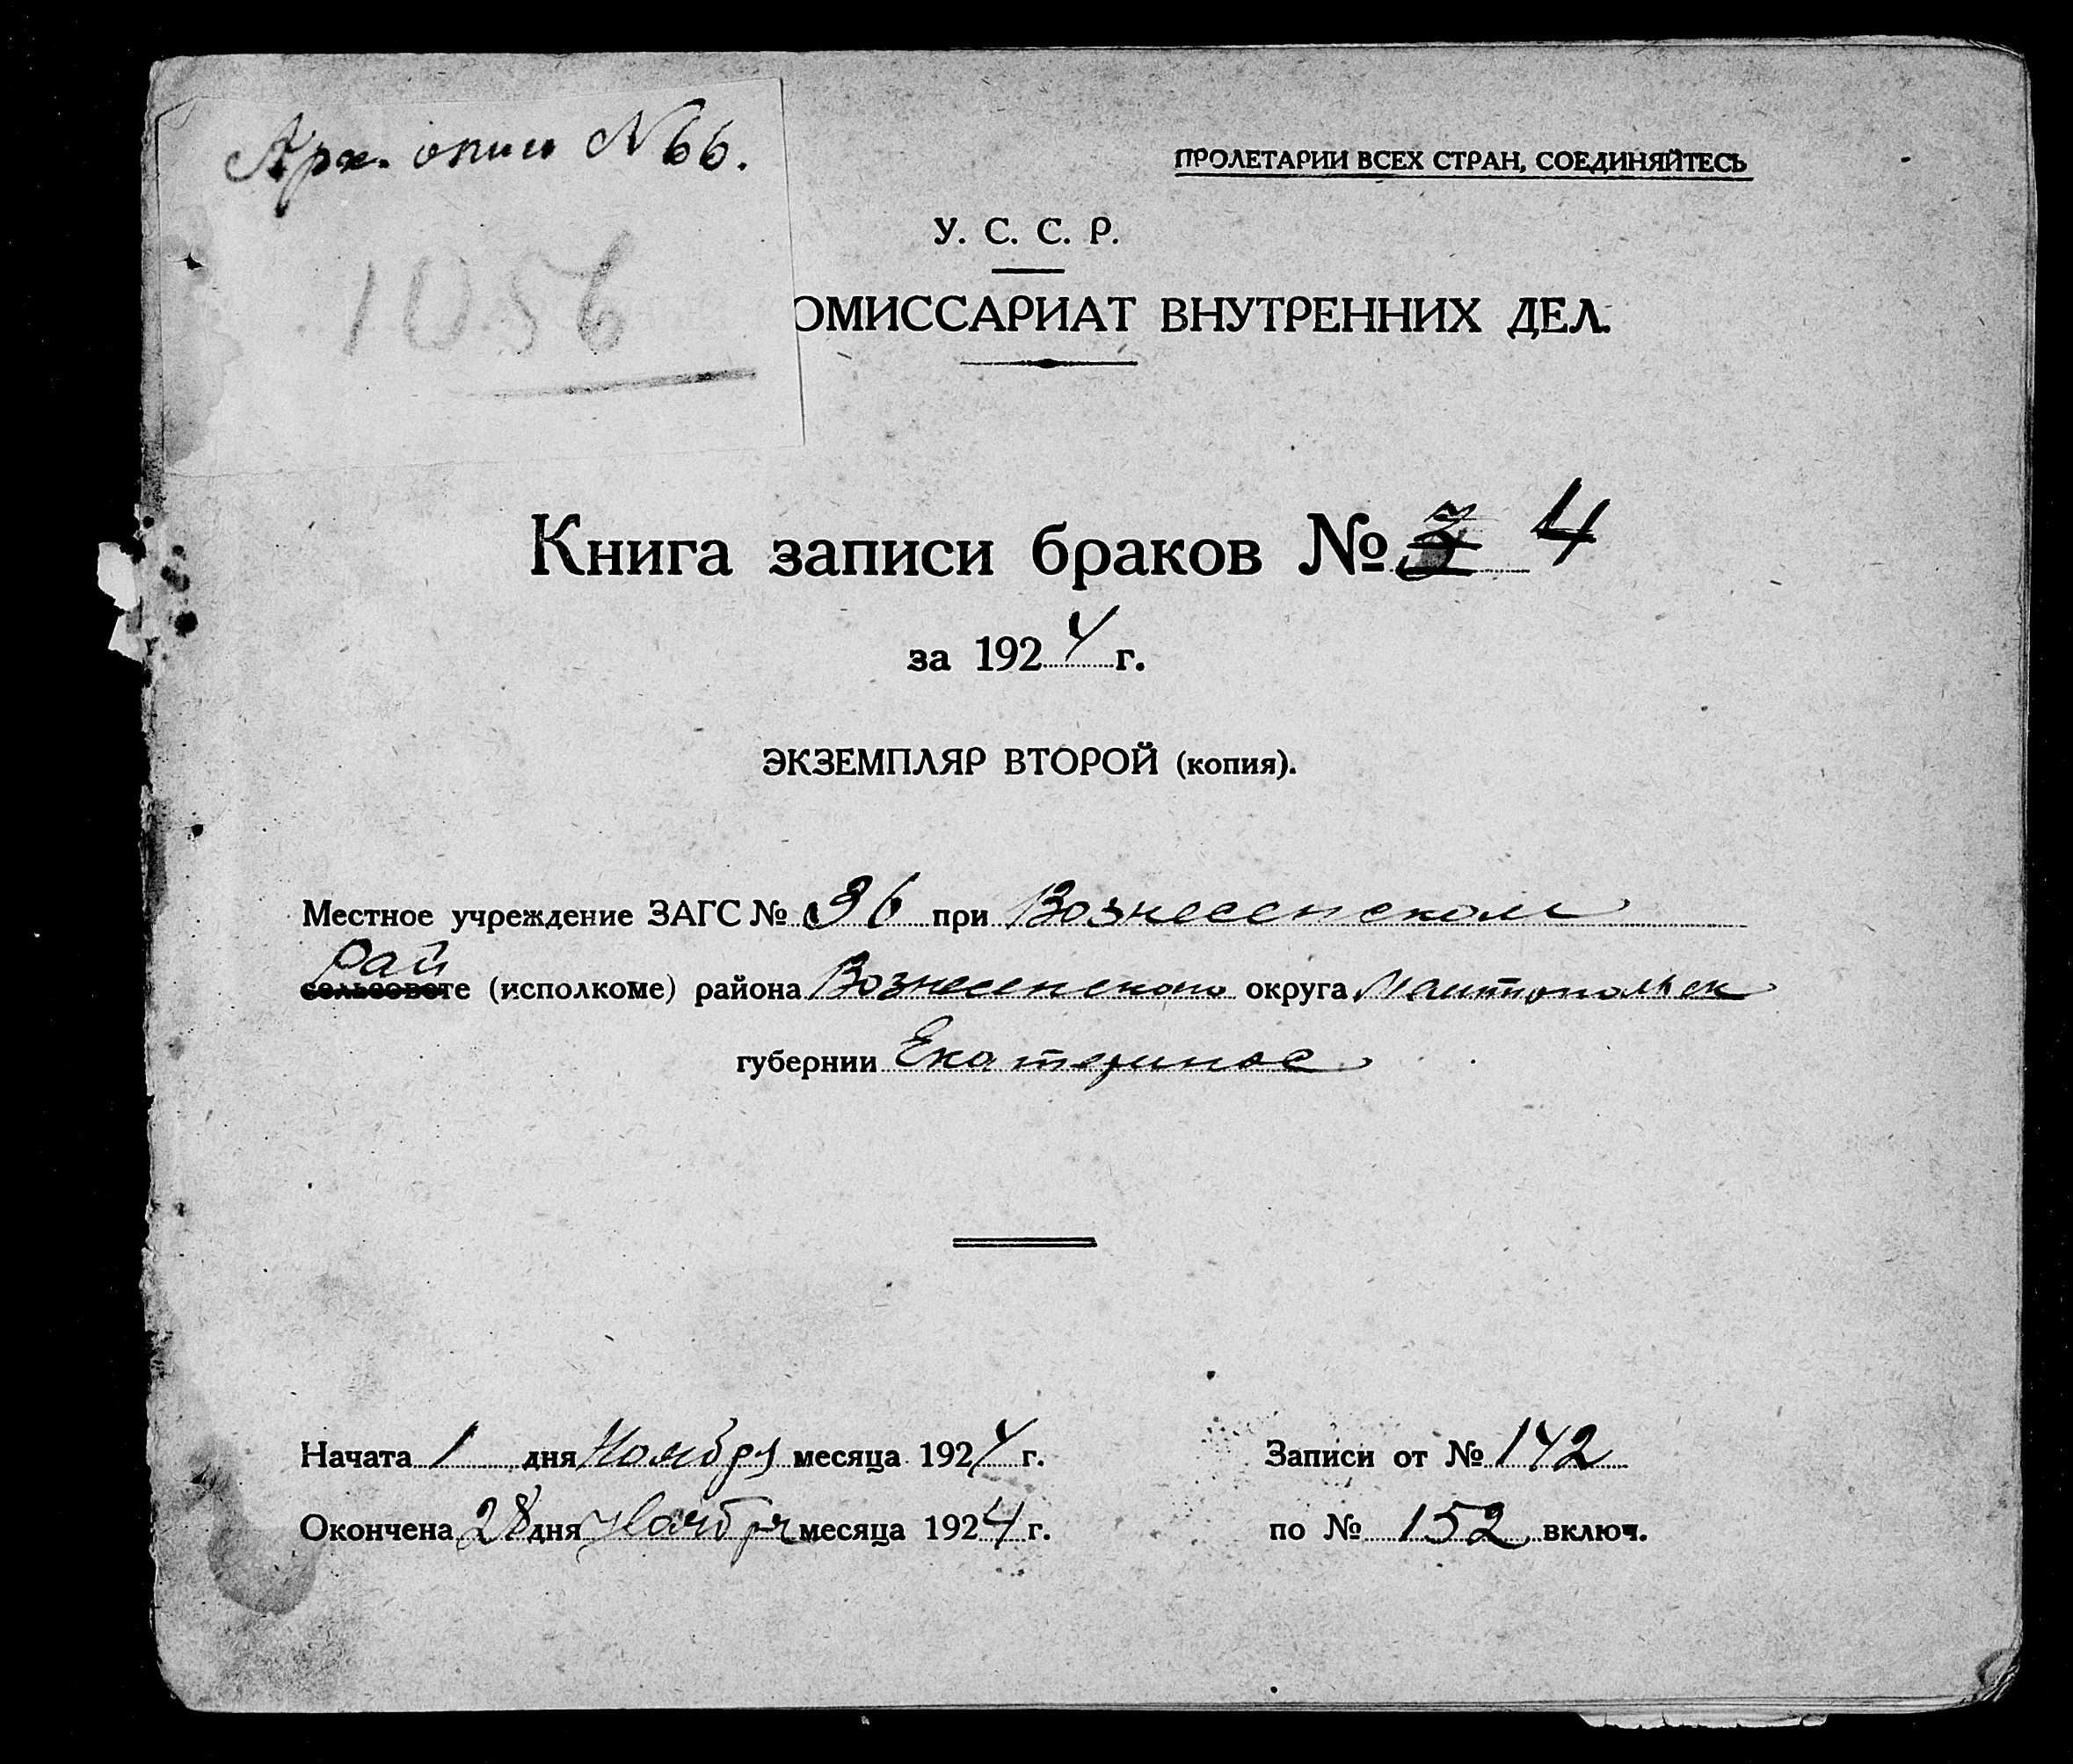 Арх. описи N 66.
1056
ПРОЛЕТАРИИ ВСЕХ СТРАН, СОЕДИНЯЙТЕСЬ
У. С. С. Р.
ОМИССАРИАТ ВНУТРЕННИХ ДЕЛ.
Книга записи браков № 3 4
за 1924 г.
ЭКЗЕМПЛЯР ВТОРОЙ (копия).
Местное учреждение ЗАГС № 96 при Вознесенском
Рай
сельсовете (исполкоме) района Вознесенского округа
губернии Екатеринос
Начата 1 дня Ноября месяца 1924 г. Записи от № 142
Окончена 28 дня Ноября месяца 1924 г. по № 152 включ.